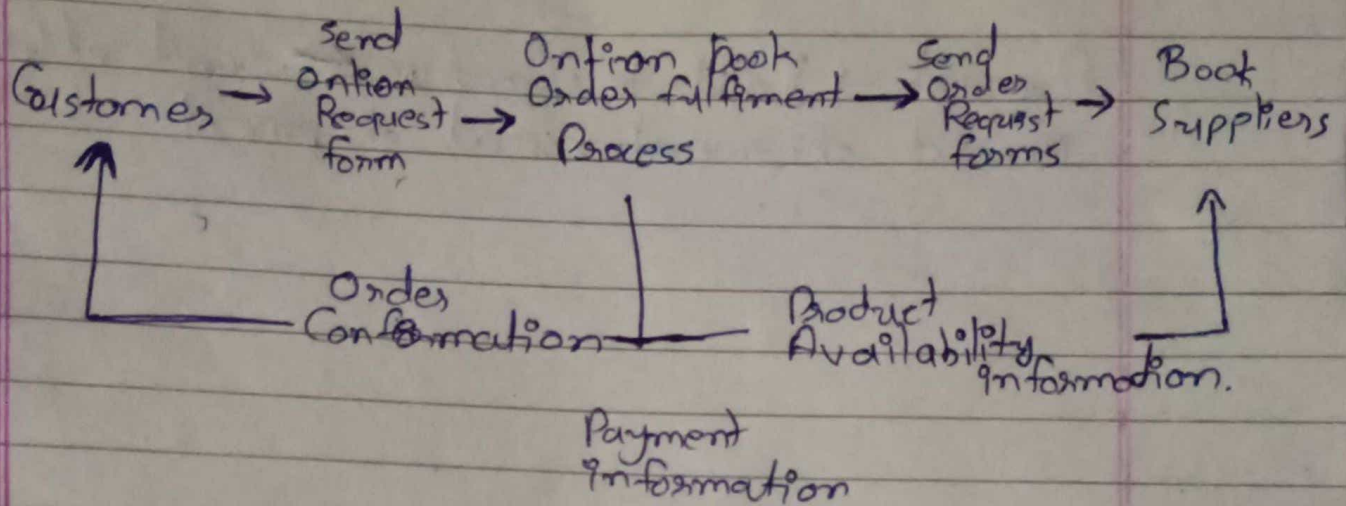 Customer
Send
Ontion
Request
form
Ontiron book
Order fulfiment
Process
Send
Order
Request
forms
Book
Suppliers
Order
Conformation
Product
Availability
information.
Payment
information